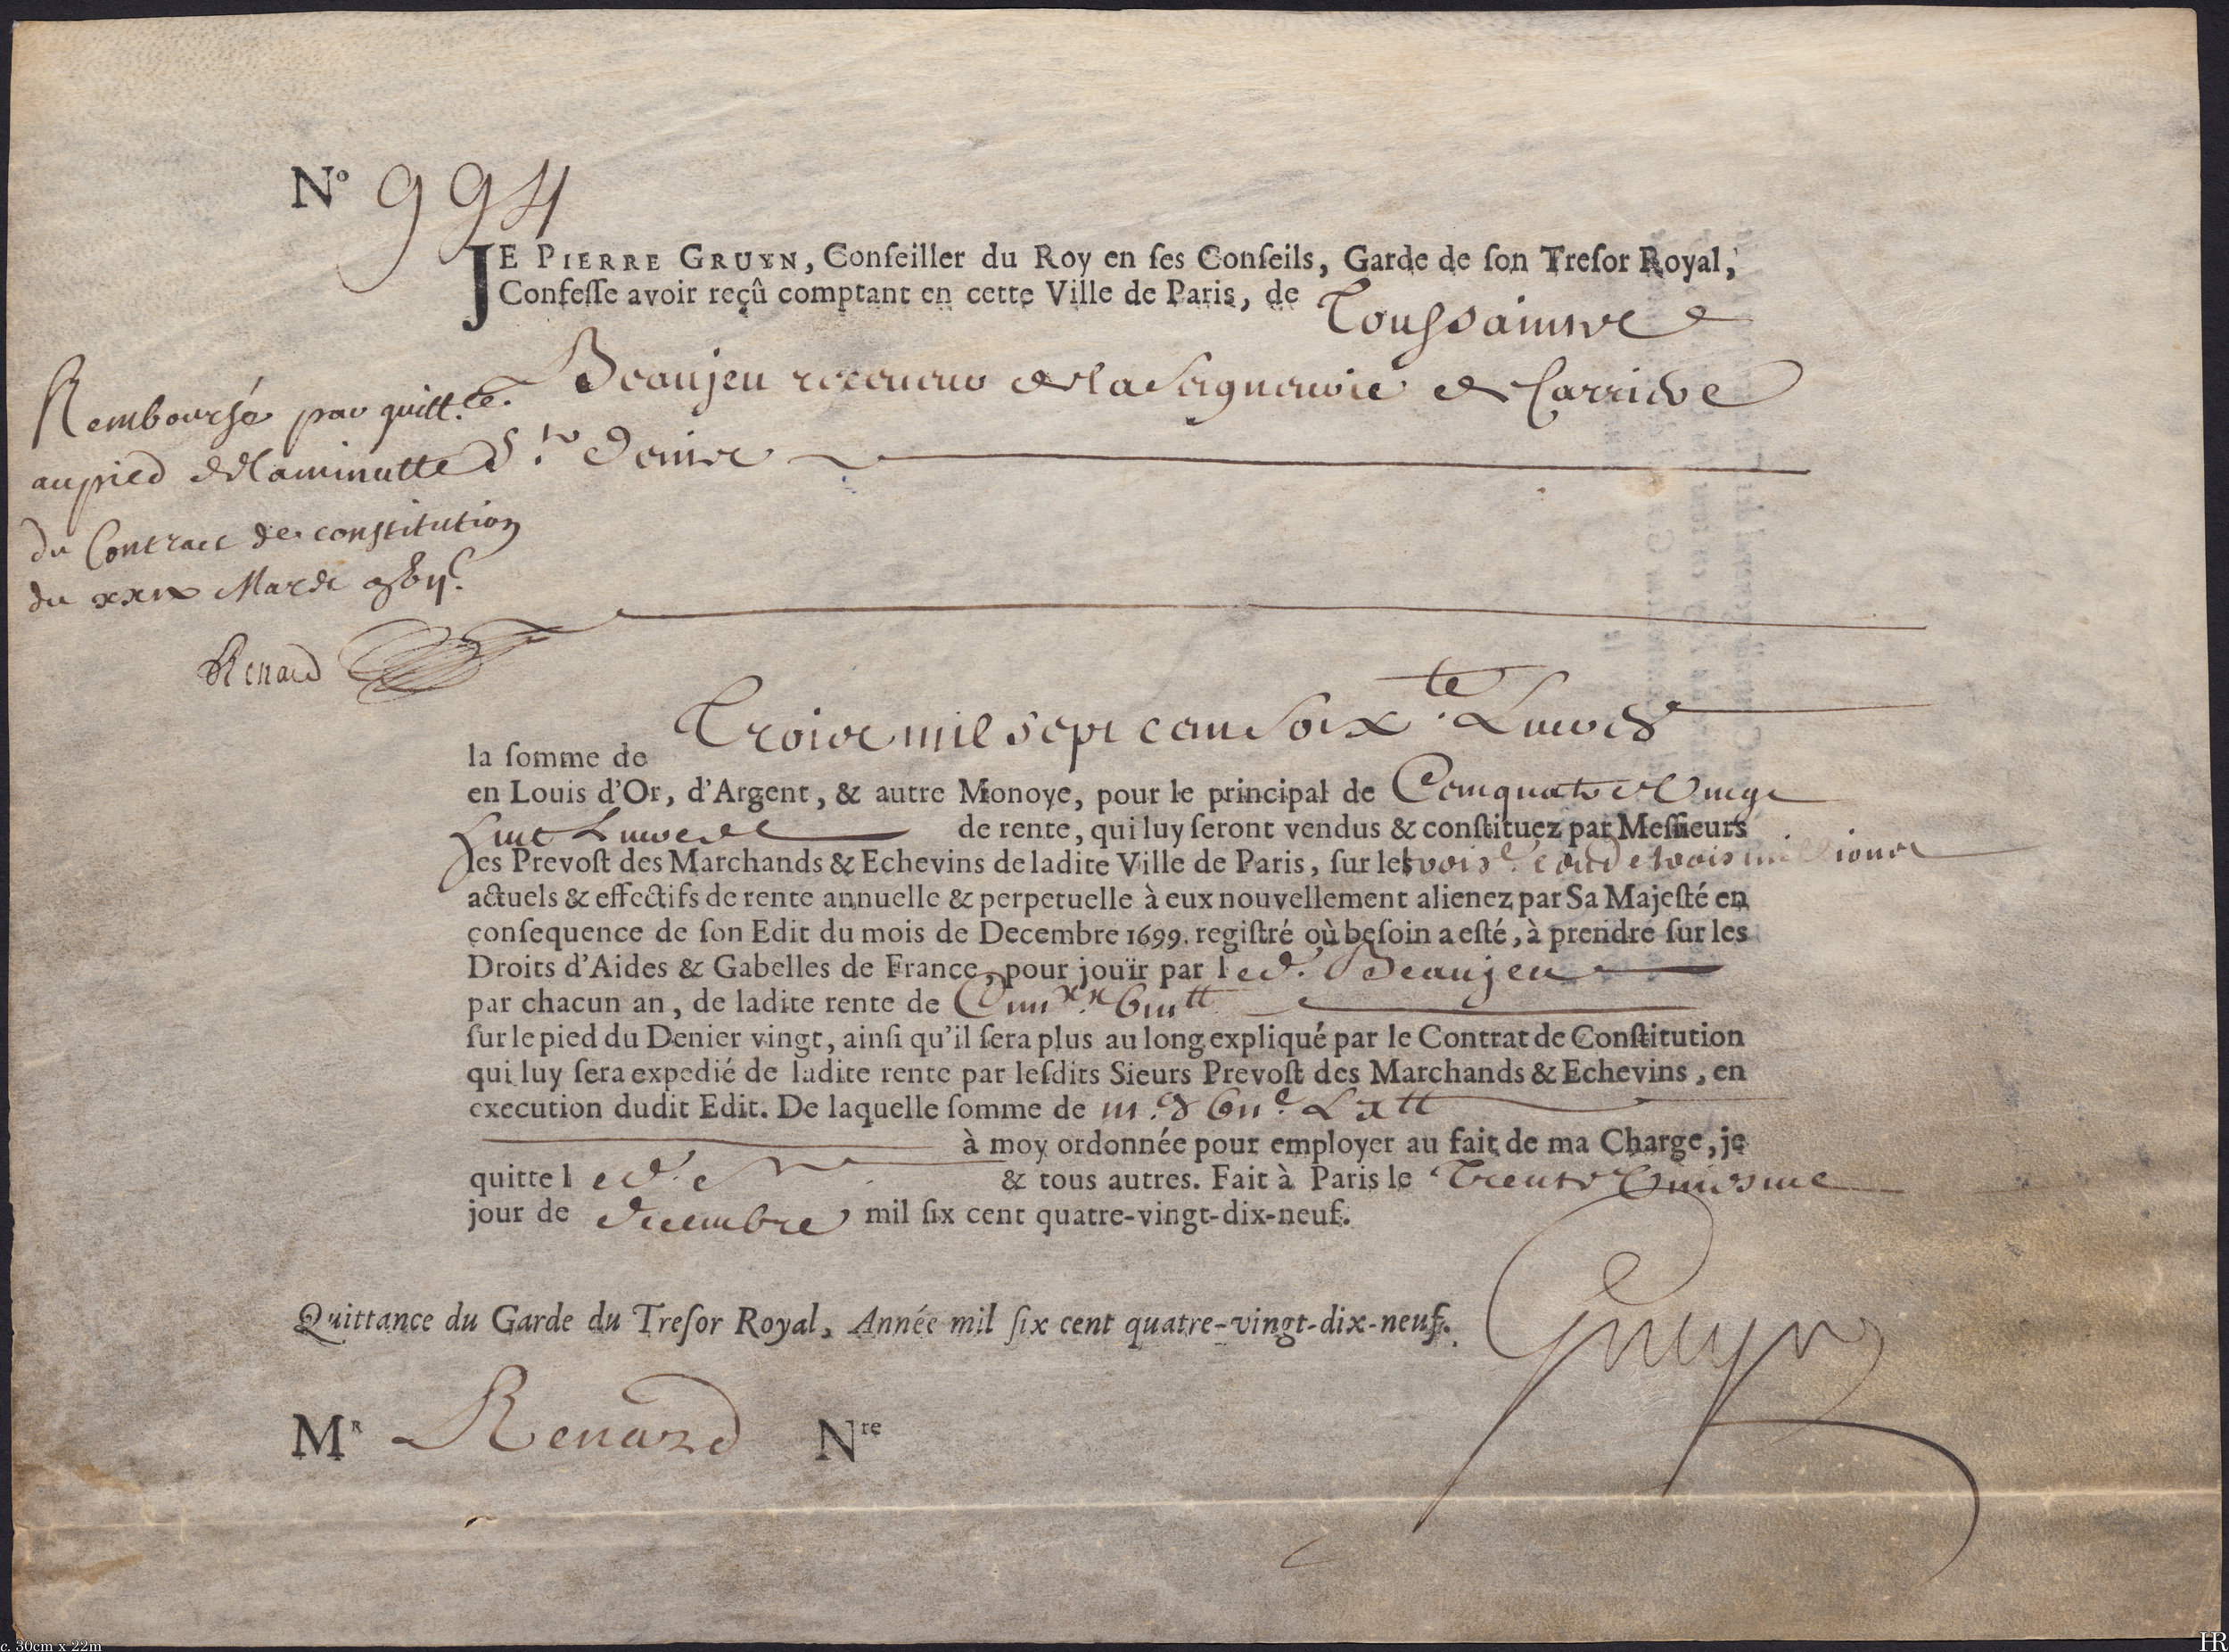 Nº 994
JE PIERRE GRUYN, Conſeiller du Roy en ſes Conſeils, Garde de ſon Treſor Royal,
Confeſſe avoir reçû comptant en cette Ville de Paris, de Toussainct
Beaujeu receveur de la Seigneurie de Carrieve
St Denis
Remboursé par quitt.ce
au pied de la minutte
du Contract de constitution
du xxix Mars
Renard
la ſomme de Trois mil sept cent soixte Livres
en Louis d'Or, d'Argent, & autre Monoye, pour le principal de Cent quatre Vingt
huit Livres de rente, qui luy ſeront vendus & conſtituez par Meſſieurs
les Prevoſt des Marchands & Echevins de ladite Ville de Paris, ſur les trois millions
actuels & effectifs de rente annuelle & perpetuelle à eux nouvellement alienez par Sa Majeſté en
conſequence de ſon Edit du mois de Decembre 1699. regiſtré où beſoin a eſté, à prendre ſur les
Droits d'Aides & Gabelles de France, pour jouïr par led. Beaujeu
par chacun an, de ladite rente de
ſur le pied du Denier vingt, ainſi qu'il ſera plus au long expliqué par le Contrat de Conſtitution
qui luy ſera expedié de ladite rente par leſdits Sieurs Prevoſt des Marchands & Echevins, en
execution dudit Edit. De laquelle ſomme de
à moy ordonnée pour employer au fait de ma Charge, je
quitte led. & tous autres. Fait à Paris le Trente Uniesme
jour de decembre mil ſix cent quatre-vingt-dix-neuf.
Quittance du Garde du Treſor Royal, Année mil ſix cent quatre-vingt-dix-neuf.
Gruyn
MR Renard Nre
c. 30cm x 22m
HR